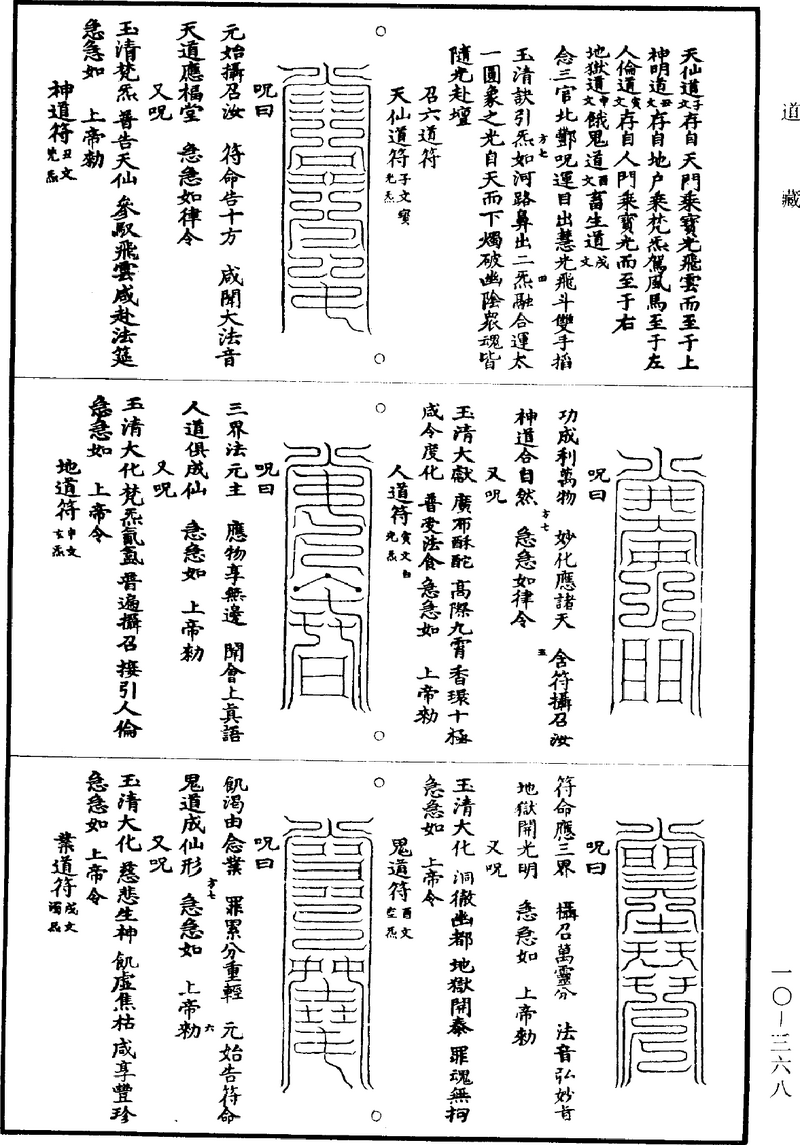 道藏
天仙道子文存自天門乘寶光飛雲而至于上
神明道丑文存自地户乘梵炁駕風馬至于左
人倫道寅文存自人門乘寶光而至于右
地獄道申文餓鬼道酉文畜生道戌文
念三官北酆呪運目出慧光飛斗雙手搯
玉清訣引炁如河路鼻出二炁融合運太
一圓象之光自天而下燭破幽陰衆魂皆
隨光赴壇
召六道符
天仙道符子文寶光炁
呪曰
元始攝召汝　符命告十方　咸聞大法音
天道應福堂　急急如律令
又呪
玉清梵炁　普告天仙　參馭飛雲　咸赴法筵
急急如　上帝勑
神道符丑文梵炁
呪曰
功成利萬物　妙化應諸天　含符攝召汝
神道合自然　急急如律令
又呪
玉清大獻　廣布酥酡　高際九霄　香環十極
咸令度化　普受法食　急急如　上帝勑
人道符寅文白光炁
呪曰
三界法元主　應物享無邊　聞會上真語
人道俱成仙　急急如　上帝勑
又呪
玉清大化　梵炁氤氲　普遍攝召　接引人倫
急急如　上帝令
地道符申文玄炁
呪曰
符命應三界　攝召萬靈分　法音弘妙旨
地獄開光明　急急如　上帝勑
又呪
玉清大化　洞徹幽都　地獄開泰　罪魂無拘
急急如　上帝令
鬼道符酉文空炁
呪曰
飢渴由念業　罪累分重輕　元始告符命
鬼道成仙形　急急如　上帝勑
又呪
玉清大化　慈悲生神　飢虛焦枯　咸享豐珍
急急如　上帝令
業道符戌文濁炁
一〇—三六八